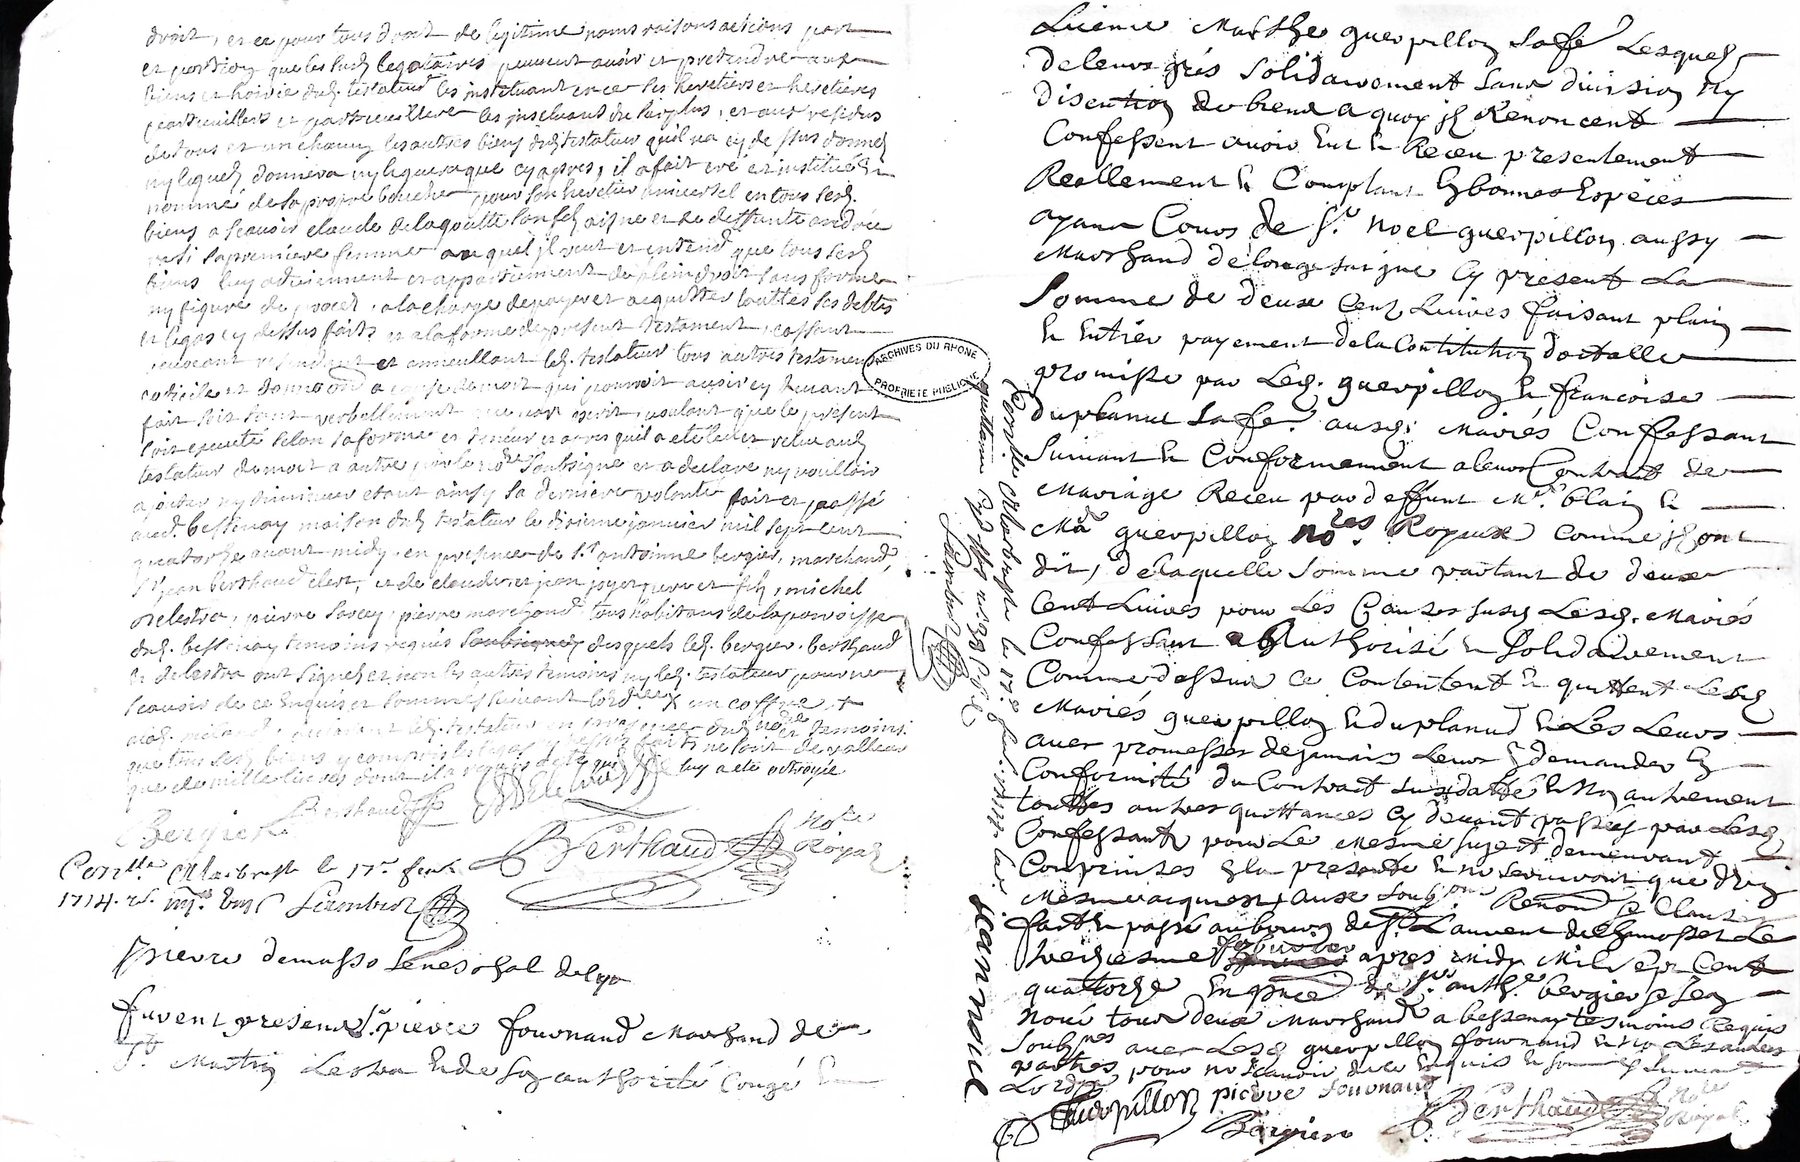 droit, et ce pour tous droit de legitime noms raisons actions part
et portion que les susd legataires peuvent avoir et pretendre aux
biens et hoirie dud. testateur les instituant en ce ses heretiers et heretieres
particuilliers et particuilliere les excluant du surplus, et aux residus
de tous et un chacung les autres biens dud testateur qu'il n'a cy dessus donnés
ny legués donnera ny leguera que cy apres, il a fait créé et institué et
nommé de sa propre bouche pour son heretier universel en tous sesd.
biens a scavoir claude delagoutte son fils aisne et de deffunte andrée
sa premiere femme auquel il veut et entend que tous sesd
biens luy adviennent et appartiennent de plein droit sans forme
ny figure de proces, a la charge de payer et acquitter touttes ses debtes
et legas cy dessus faits et a la forme du present testament, cassant
revocant et annullant led. testateur tous autres testaments
codicile et donnaon a cause de mort qui pourroit avoir cy devant
fait soit verbellement que par escrit, voulant que le present
soit executé selon sa forme et teneur et apres qu'il a eté leu et releu aud
testateur de mot a autre par le nore soubsigné et a declaré ny voulloir
ajouter ny diminuer etant ainsy sa derniere volonté fait et passé
aud. bessenay maison dud testateur le dixieme janvier mil sept cent
quatorze avant midy en presence de sr antoinne bergier, marchand,
sr jean berthaud clerc, et de claude et jean joyet pere et fils, michel
delestra, pierre sarcey, pierre marchand tous habitans de la paroisse
dud. bessenay temoins requis soubsignes desquels led. bergier. berthaud
et delestra ont signé et non les autres temoins ny led. testateur pour ne
scavoir de ce enquis et sommés suivant l'ordce x un coffre +
que tous ses biens y compris les legas cy dessus faits ne sont de valleur
que de mille livres dont luy a eté octroyée
Bergier Berthaud Delestra
Berthaud Nore Royal
Conlle a Larbresle le 17e feb.
1714. Lambert
Pierre demasso seneschal de lyon
furent presens sr pierre fournand Marchand de
St Martin Lestra et de son authorité Congé et
ARCHIVES DU RHONE
PROPRIETE PUBLIQUE
Licence Marthe guerpillon safe Lesquels
de leurs grés solidairement sans division ny
discution de biens a quoy ils Renoncent
Confessent avoir eut et Receu presentement
Reellement et Comptant en bonnes Espèces
ayant Cours de sr. noel guerpillon aussy
Marchand de longesaigne cy present La
somme de deux cent Livres faisant plain
et entier payement de la Constitution dottalle
promise par Led. guerpillon et francoise
duplanut sa fe. ausd. mariés Confessant
suivant et Conformement a leur Contract de
Mariage Receu par deffunt Mre. blain et
Mre guerpillon nores. Royaux comme ils ont
dit, de laquelle somme partant de deux
cent Livres pour Les Causes susd Lesd. mariés
Confessant authorisé et solidairement
Comme dessus ce Contentent et quittent Lesd
Mariés guerpillon et duplanut et Les Leurs
avec promesses de jamais Leur en demander en
Conformité du Contract susdatté et non autrement
touttes autres quittances cy devant passés par Lesd
Confessants pour Le mesme sujet demeurant
Comprinses en la presente et ne serviront que d'un
mesme acquest, aux soubons Renons et Clauses
fait et passé au bourg de St Laurent de Chamosset Le
treziesme febvrier apres midy mil sept cent
quattorze en pnce de srs anthe. bergier et jean
noué tous deux Marchands a bessenay tesmoins Requis
soubnes avec Lesd guerpillon fournand et non Les autres
parties pour ne scavoir de ce Enquis et sommés suivant
Lordce
Guerpillon pierre fournand
Bergier Berthaud Nore Royal
jean noué
Conlle a Larbresle le 17e feb. 1714
Lambert